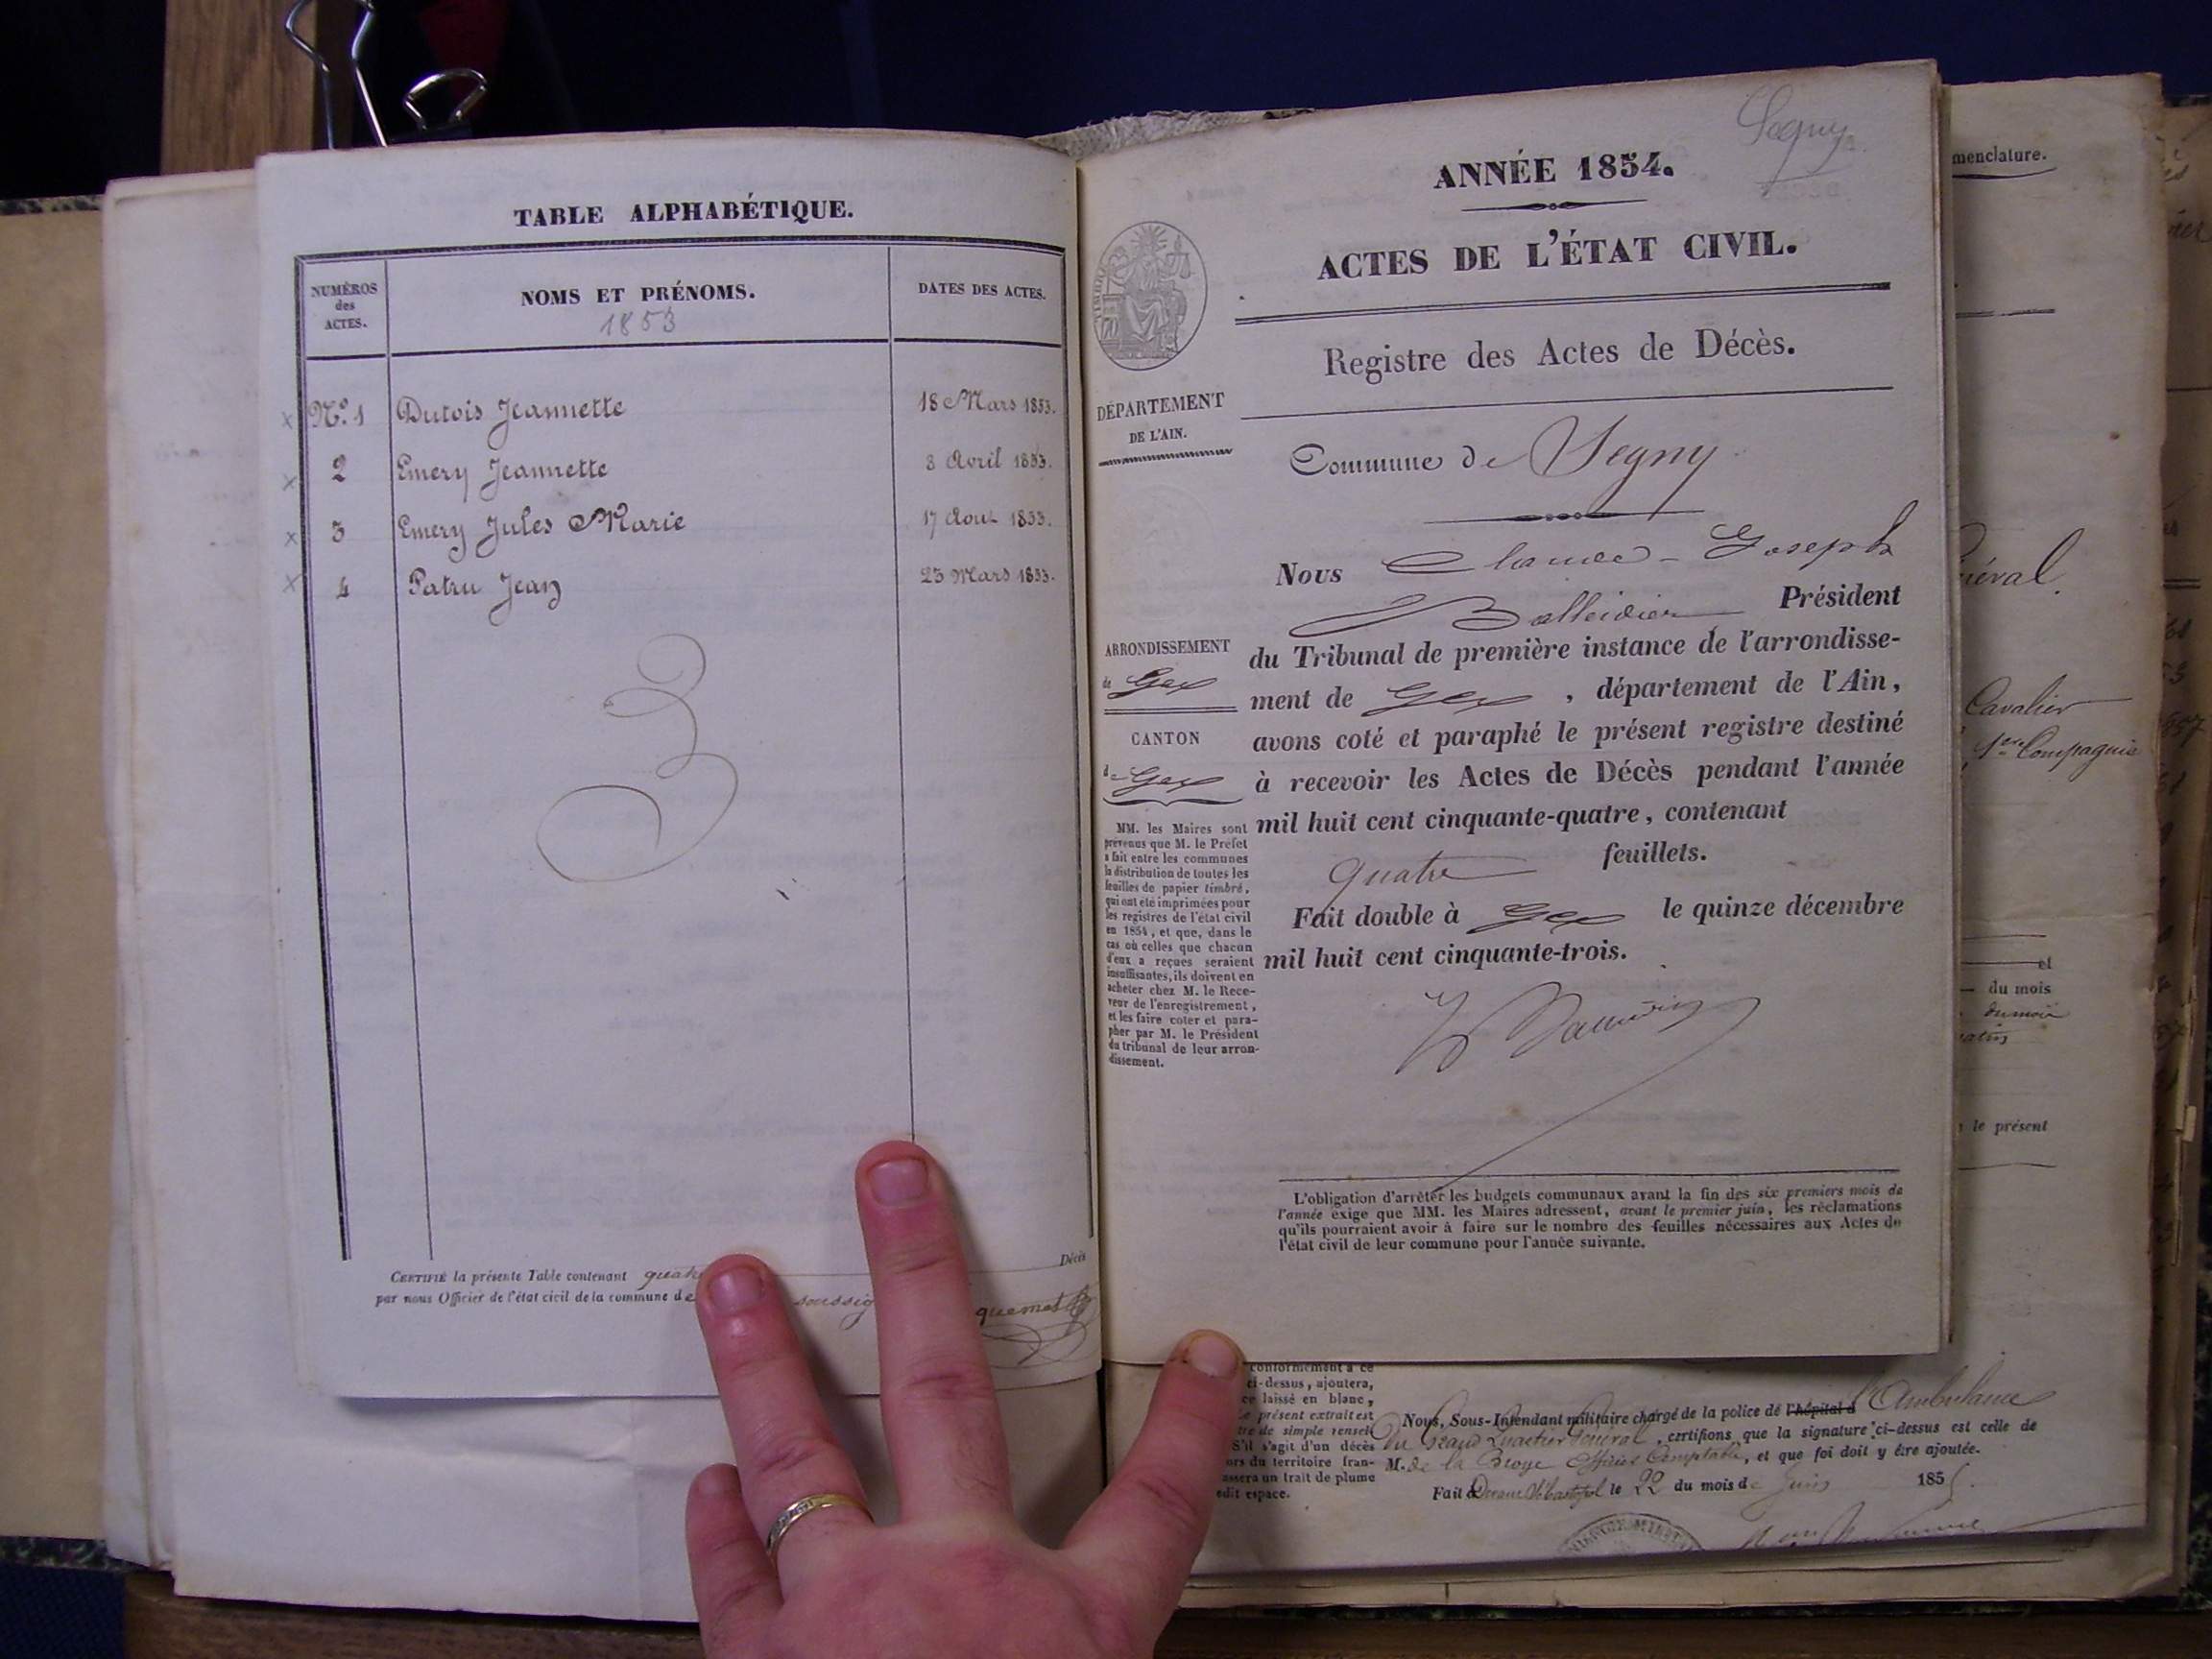 TABLE ALPHABÉTIQUE.
NUMÉROS des ACTES.
NOMS ET PRÉNOMS.
1853
DATES DES ACTES.
N.º 1 Dutois Jeannette 18 Mars 1853.
2 Emery Jeannette 3 Avril 1853.
3 Emery Jules Marie 17 Aout 1853.
4 Patru Jean 23 Mars 1853.
CERTIFIÉ la présente Table contenant Décès
par nous Officier de l'état civil de la commune de
Segny
ANNÉE 1854.
ACTES DE L'ÉTAT CIVIL.
Registre des Actes de Décès.
DÉPARTEMENT
DE L'AIN.
Commune de Segny
Nous Claude-Joseph
Balleidier Président
du Tribunal de première instance de l'arrondisse-
ment de Gex, département de l'Ain,
avons coté et paraphé le présent registre destiné
à recevoir les Actes de Décès pendant l'année
mil huit cent cinquante-quatre, contenant
quatre feuillets.
Fait double à Gex le quinze décembre
mil huit cent cinquante-trois.
ARRONDISSEMENT
de Gex
CANTON
de Gex
MM. les Maires sont
prévenus que M. le Préfet
a fait entre les communes
la distribution de toutes les
feuilles de papier timbré,
qui ont été imprimées pour
les registres de l'état civil
en 1854, et que, dans le
cas où celles que chacun
d'eux a reçues seraient
insuffisantes, ils doivent en
acheter chez M. le Rece-
veur de l'enregistrement,
et les faire coter et para-
pher par M. le Président
du tribunal de leur arron-
dissement.
L'obligation d'arrêter les budgets communaux avant la fin des six premiers mois de
l'année exige que MM. les Maires adressent, avant le premier juin, les réclamations
qu'ils pourraient avoir à faire sur le nombre des feuilles nécessaires aux Actes de
l'état civil de leur commune pour l'année suivante.
menclature.
Cavalier
1re Compagnie
et
du mois
le présent
conformément à ce
ci-dessus, ajoutera,
laissé en blanc,
présent extrait est
de simple rensei-
S'il s'agit d'un décès
du territoire fran-
un trait de plume
espace.
Nous, Sous-Intendant militaire chargé de la police de l'hôpital d l'Ambulance
du Grand Quartier Général, certifions que la signature ci-dessus est celle de
M. de la Broye Officier Comptable, et que foi doit y être ajoutée.
Fait Devant Sébastopol le 22 du mois de Juin 1855.